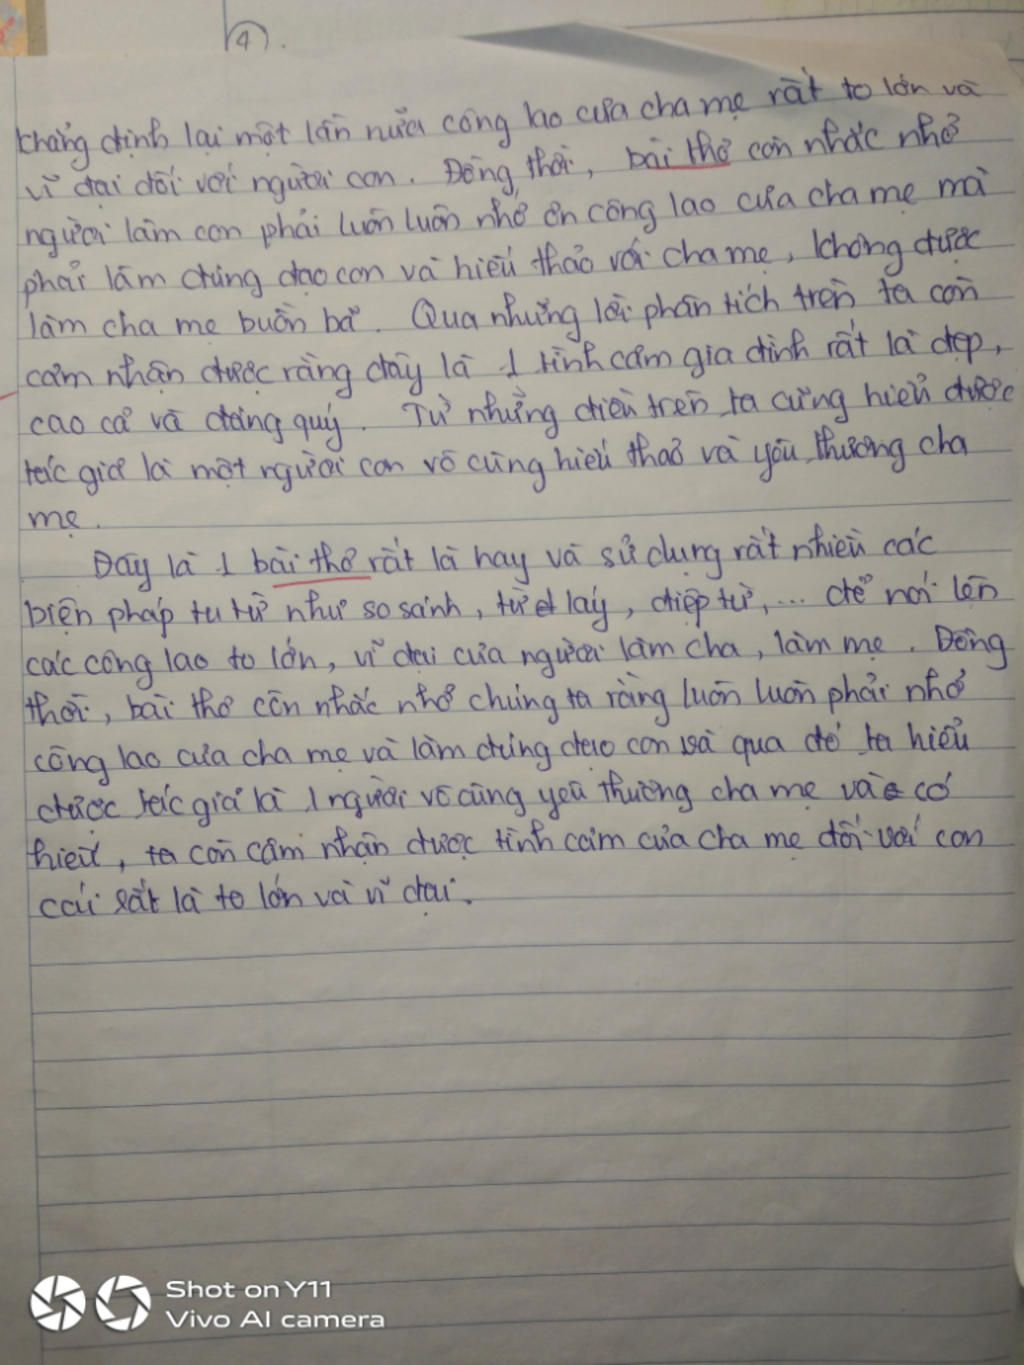 4.
khẳng định lại một lần nữa công lao của cha mẹ rất to lớn và
vĩ đại đối với người con. Đồng thời, bài thơ còn nhắc nhở
người làm con phải luôn luôn nhớ ơn công lao của cha mẹ mà
phải làm đúng đạo con và hiếu thảo với cha mẹ, không được
làm cha mẹ buồn bã. Qua những lời phân tích trên ta còn
cảm nhận được rằng đây là 1 tình cảm gia đình rất là đẹp,
cao cả và đáng quý. Từ những điều trên ta cũng hiểu được
tác giả là một người con vô cùng hiếu thảo và yêu thương cha
mẹ.
Đây là 1 bài thơ rất là hay và sử dụng rất nhiều các
biện pháp tu từ như so sánh, từ láy, điệp từ, ... để nói lên
các công lao to lớn, vĩ đại của người làm cha, làm mẹ. Đồng
thời, bài thơ còn nhắc nhở chúng ta rằng luôn luôn phải nhớ
công lao của cha mẹ và làm đúng đạo con và qua đó ta hiểu
được tác giả là 1 người vô cùng yêu thương cha mẹ và có
hiếu, ta còn cảm nhận được tình cảm của cha mẹ đối với con
cái rất là to lớn và vĩ đại.
Shot on Y11
Vivo AI camera